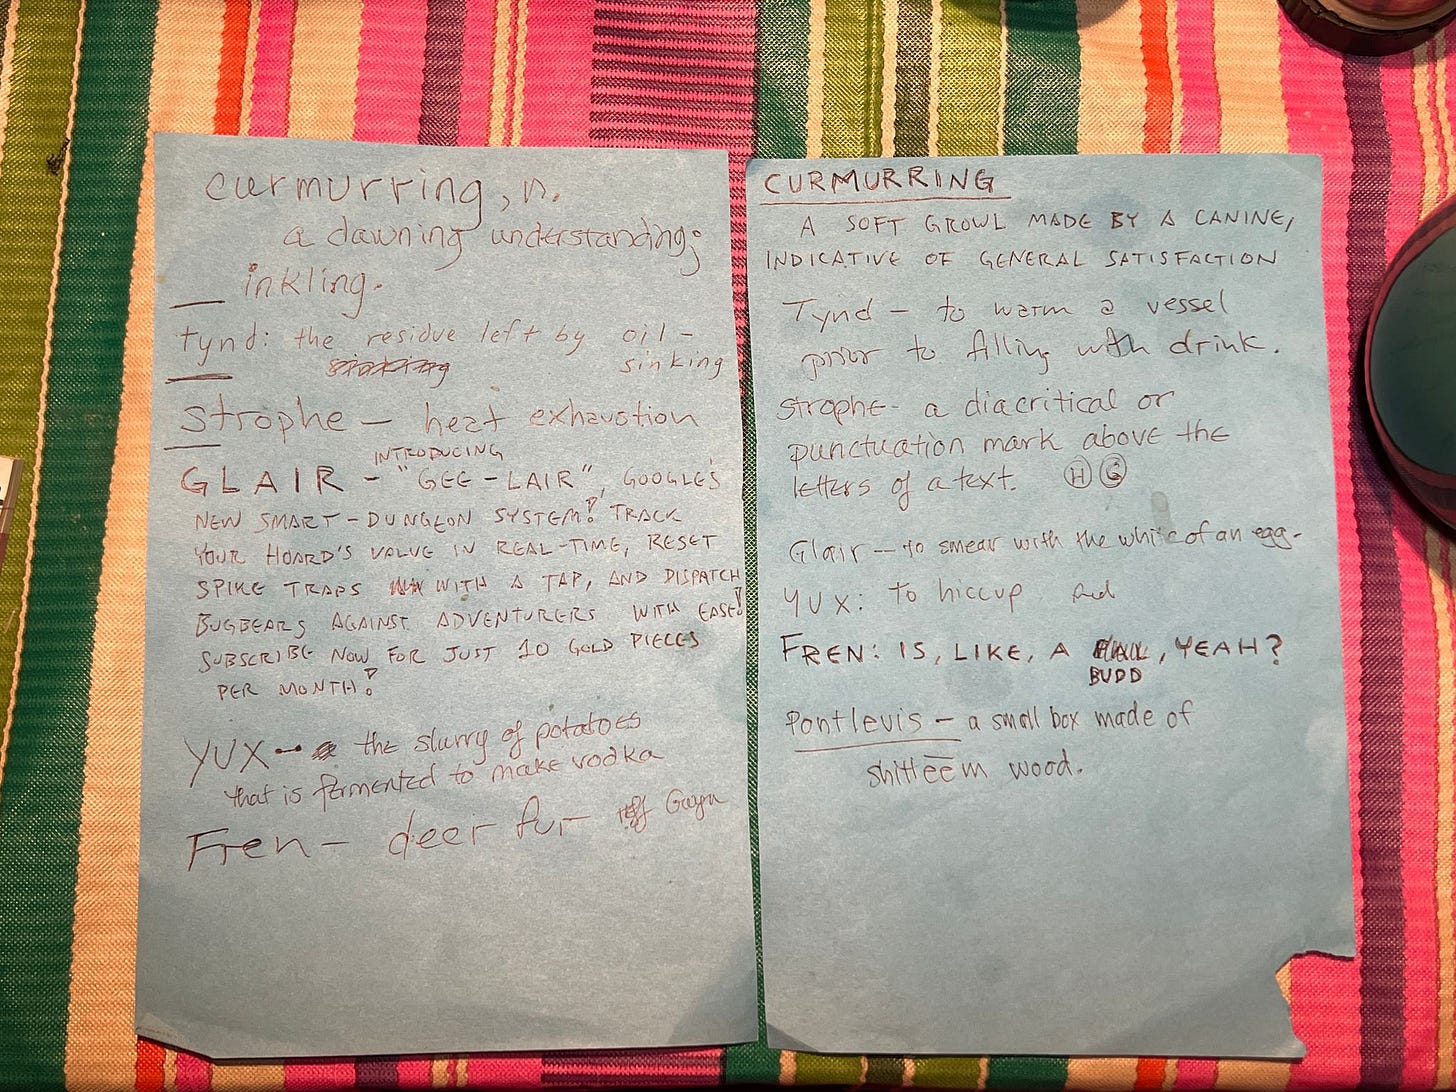 curmurring, n.
a dawning understanding;
inkling.
tynd: the residue left by oil-
sinking
strophe — heat exhaustion
INTRODUCING
GLAIR - "GEE-LAIR", GOOGLE'S
NEW SMART-DUNGEON SYSTEM! TRACK
YOUR HOARD'S VALUE IN REAL-TIME, RESET
SPIKE TRAPS WITH A TAP, AND DISPATCH
BUGBEARS AGAINST ADVENTURERS WITH EASE!
SUBSCRIBE NOW FOR JUST 10 GOLD PIECES
PER MONTH!
YUX — the slurry of potatoes
that is fermented to make vodka
Fren — deer fur
CURMURRING
A SOFT GROWL MADE BY A CANINE,
INDICATIVE OF GENERAL SATISFACTION
Tynd — to warm a vessel
prior to filling with drink.
strophe - a diacritical or
punctuation mark above the
letters of a text. H G
Glair — to smear with the white of an egg.
YUX: to hiccup
FREN: IS, LIKE, A , YEAH?
BUDD
Pontlevis — a small box made of
shitteem wood.